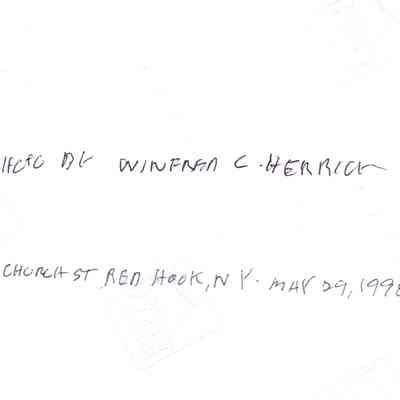 HOTO BY WINFRED C. HERRICK
CHURCH ST RED HOOK, N Y. MAY 29, 1998